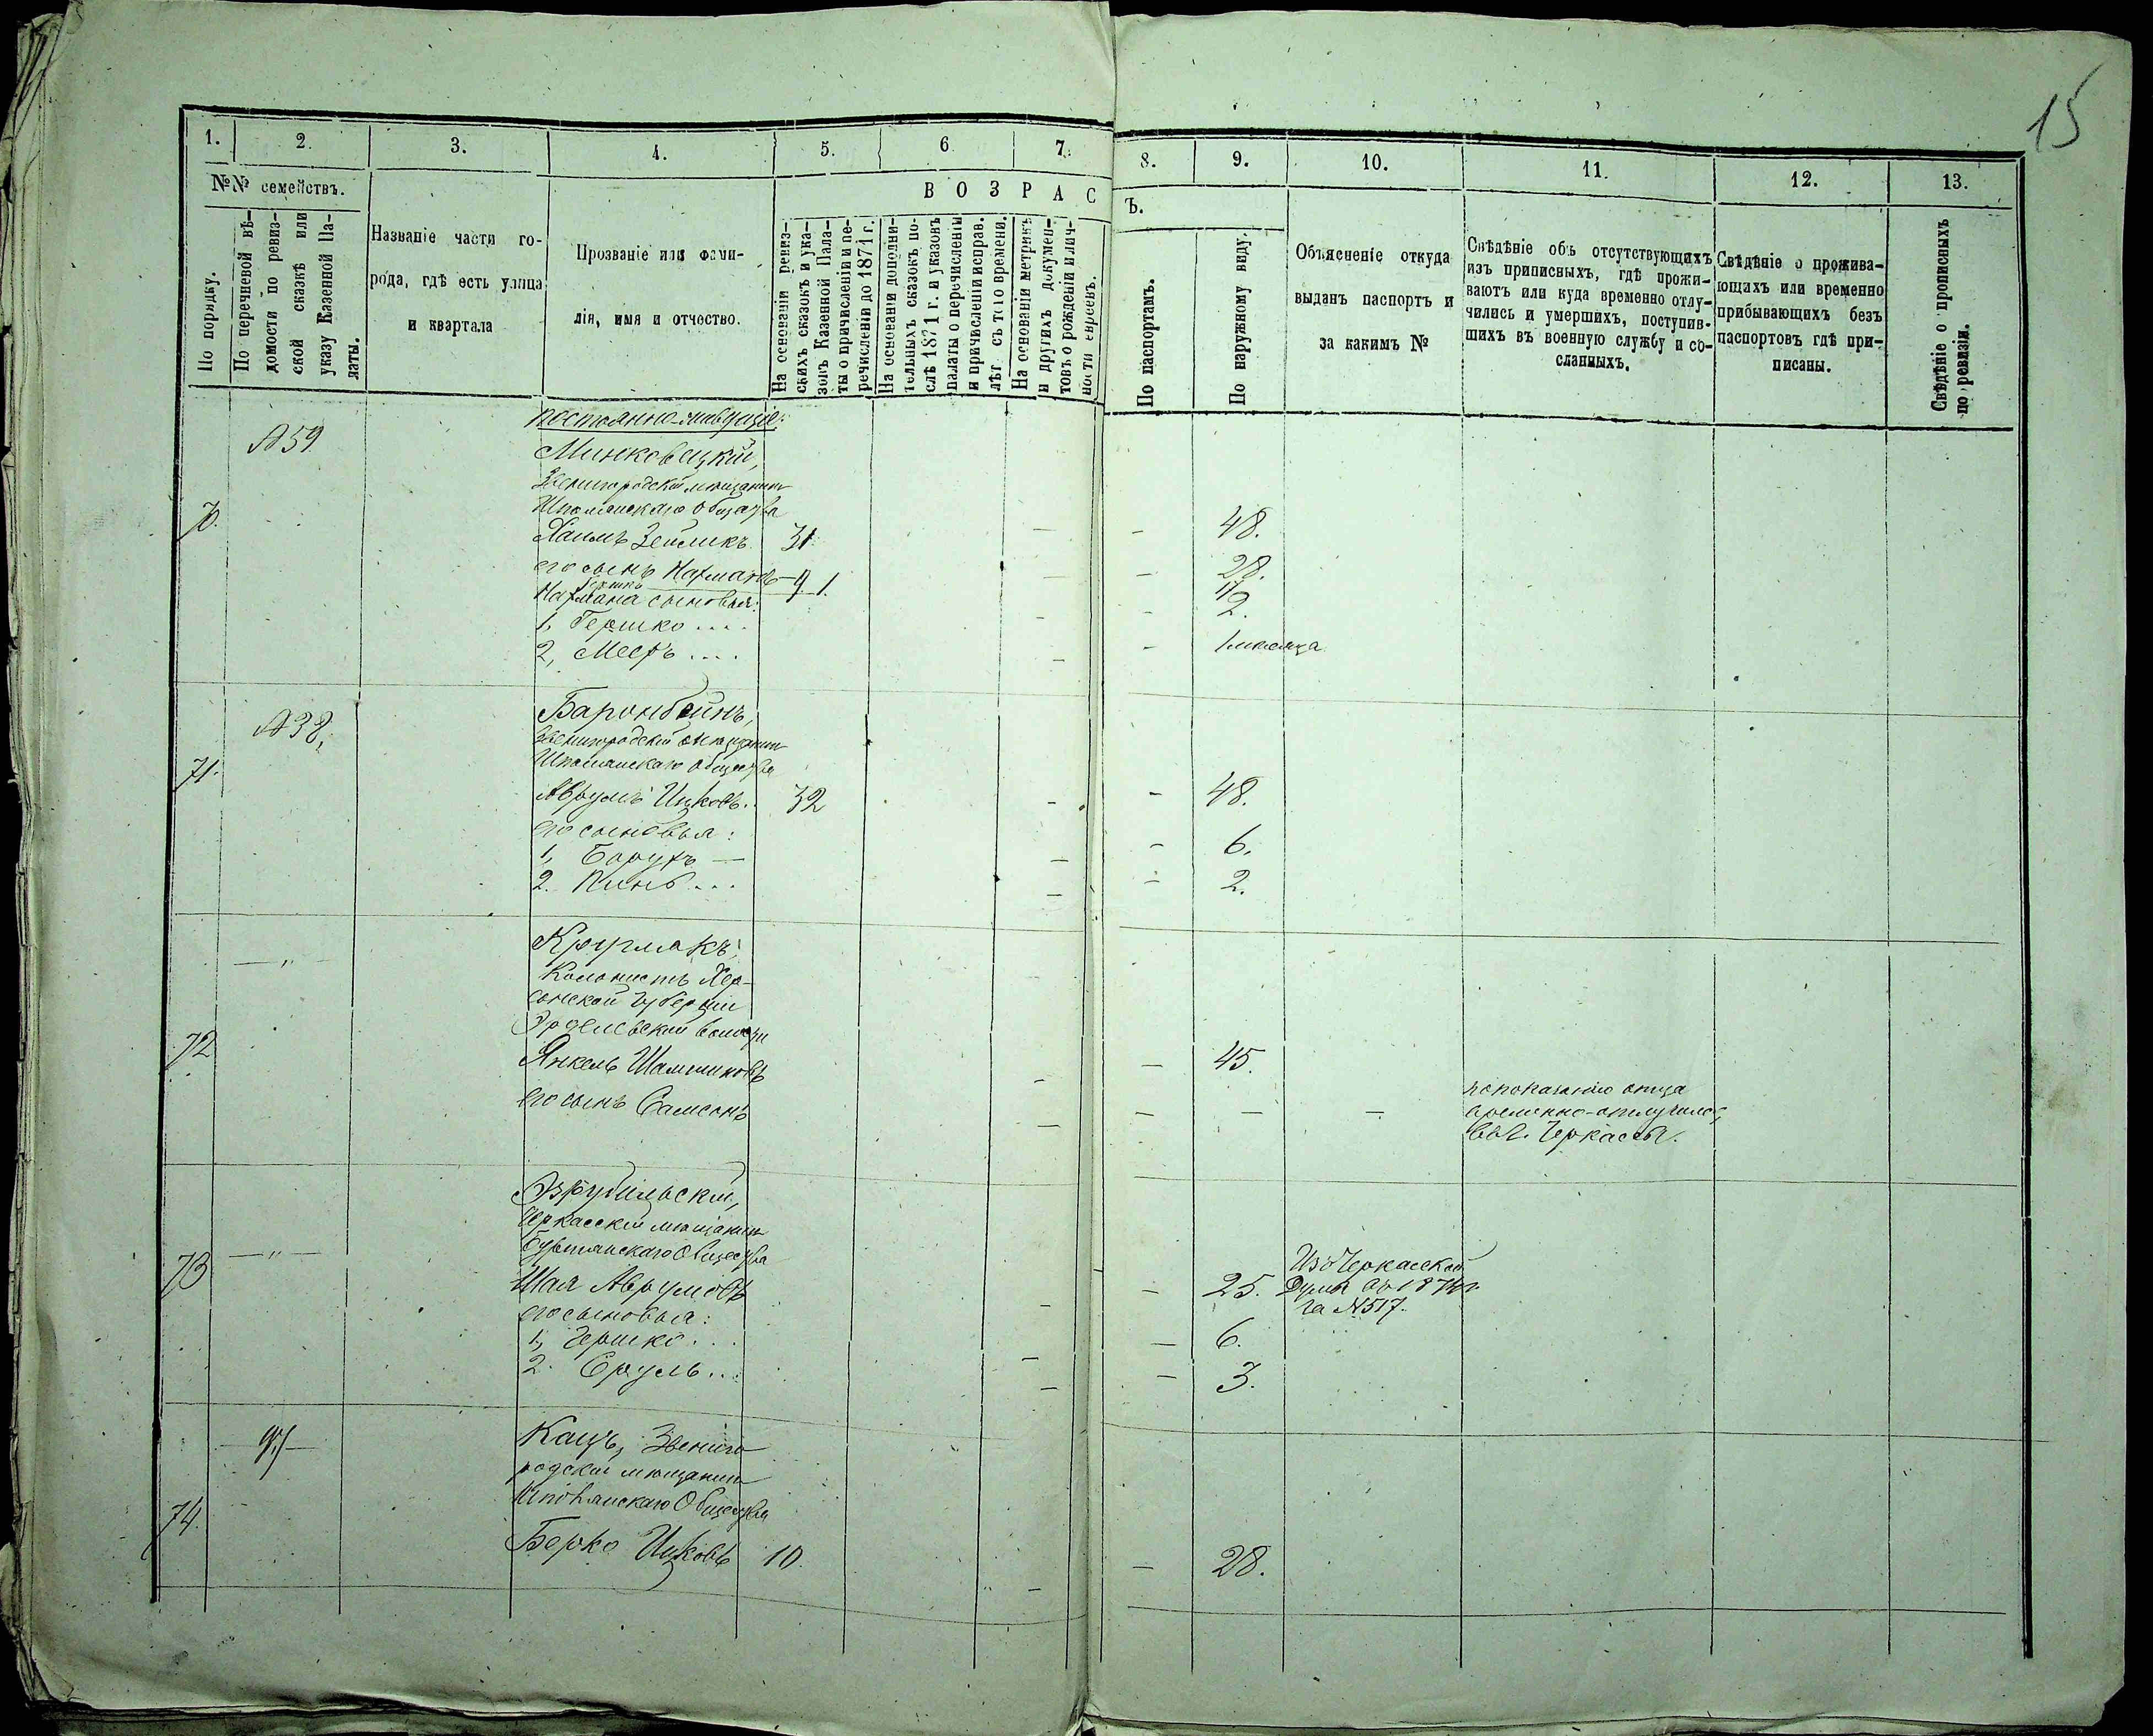 15
1. 2. 3. 4. 5. 6 7. 8. 9. 10. 11. 12. 13.
№№ семействъ.
В О З Р А С Ъ.
По порядку.
По перечневой вѣ-
домости по ревиз-
ской сказкѣ или
указу Казенной Па-
латы.
Названіе части го-
рода, гдѣ есть улица
и квартала
Прозваніе или фами-
лія, имя и отчество.
На основаніи ревиз-
скихъ сказокъ и ука-
зовъ Казенной Пала-
ты о причисленіи и пе-
речисленіи до 1871 г.
На основаніи дополни-
тельныхъ сказокъ по-
слѣ 1871 г. и указовъ
палаты о перечисленіи
и причисленіи исправ.
лѣт съ того времени.
На основаніи метрикъ
и другихъ докумен-
товъ о рожденіи и лич-
ности евреевъ.
По паспортамъ.
По наружному виду.
Объясненіе откуда
выданъ паспортъ и
за какимъ №
Свѣдѣніе объ отсутствующихъ
изъ приписныхъ, гдѣ прожи-
ваютъ или куда временно отлу-
чились и умершихъ, поступив-
шихъ въ военную службу и со-
сланныхъ.
Свѣдѣніе о прожива-
ющихъ или временно
прибывающихъ безъ
паспортовъ гдѣ при-
писаны.
Свѣдѣніе о прописныхъ
по ревизіи.
постоянно-живущіе:
№ 59 Минковецкій,
Звенигородскій мѣщанинъ
Шполянскаго Общества
70. Хаимъ Зейликъ 31. - 48.
его сынъ Нахманъ - 28.
Нахмана сыновья:
1, Гершко .... - 2.
2, Мееръ .... - 1 мѣсяца
№ 38,
Звенигородскій мѣщанинъ
71. Шполянскаго Общества
Аврумъ Ицковъ. 32 - 48.
его сыновья:
1, Борухъ — - 6.
2. Пинь... - 2.
— " — Кругмакъ,
Колонистъ Хер-
сонской Губерніи
72
Янкель - 45.
его сынъ Самсонъ - - - по показанію отца
временно-отлучился
въ г. Черкассы.
Черкасскій мѣщанинъ
73 — " — Общества
Шая Аврумовъ - 25. Изъ Черкасской
Думы
за №517.
его сыновья:
1, Гершко... - 6.
2. Сруль... - 3.
Кацъ, Звениго
родскій мѣщанинъ
74. Шполянскаго Общества
Берко Ицковъ 10. - 28.